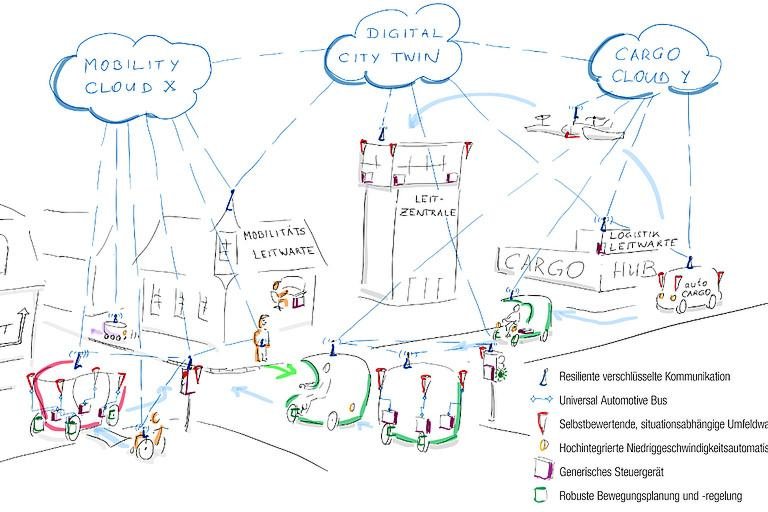 MOBILITY
CLOUD X
DIGITAL
CITY TWIN
CARGO
CLOUD Y
LEIT-
ZENTRALE
MOBILITÄTS
LEITWARTE
LOGISTIK
LEITWARTE
CARGO HUB
auto
CARGO
T
Resiliente verschlüsselte Kommunikation
Universal Automotive Bus
Selbstbewertende, situationsabhängige Umfeldwa
Hochintegrierte Niedriggeschwindigkeitsautomatis
Generisches Steuergerät
Robuste Bewegungsplanung und -regelung